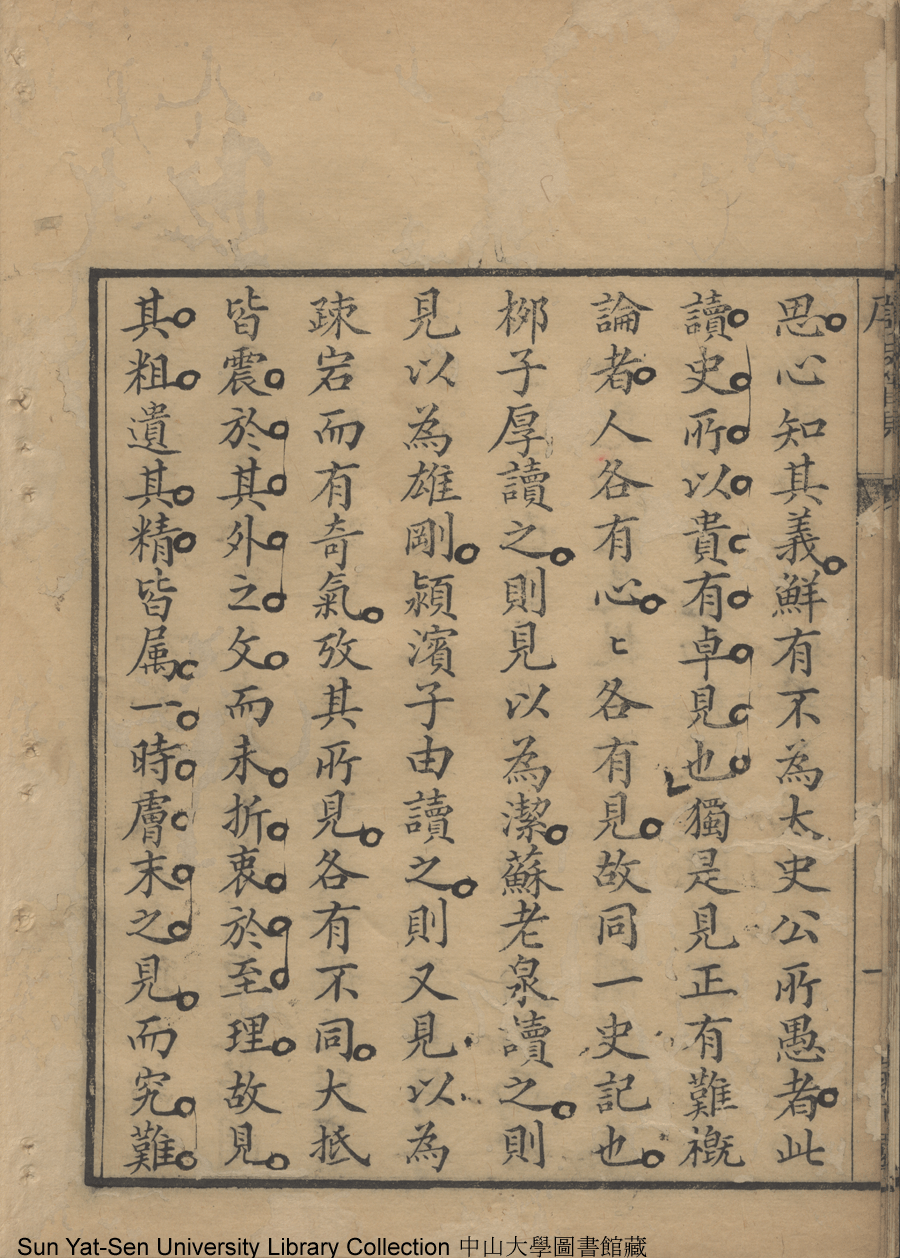 思心知其義鮮有不為太史公所愚者此
讀史所以貴有卓見也獨是見正有難概
論者人各有心〻各有見故同一史記也
柳子厚讀之則見以為潔蘇老泉讀之則
見以為雄剛潁濱子由讀之則又見以為
疎宕而有奇氣攷其所見各有不同大抵
皆震於其外之文而未折衷於至理故見
其粗遺其精皆属一時膚末之見而究難
Sun Yat-Sen University Library Collection 中山大學圖書館藏